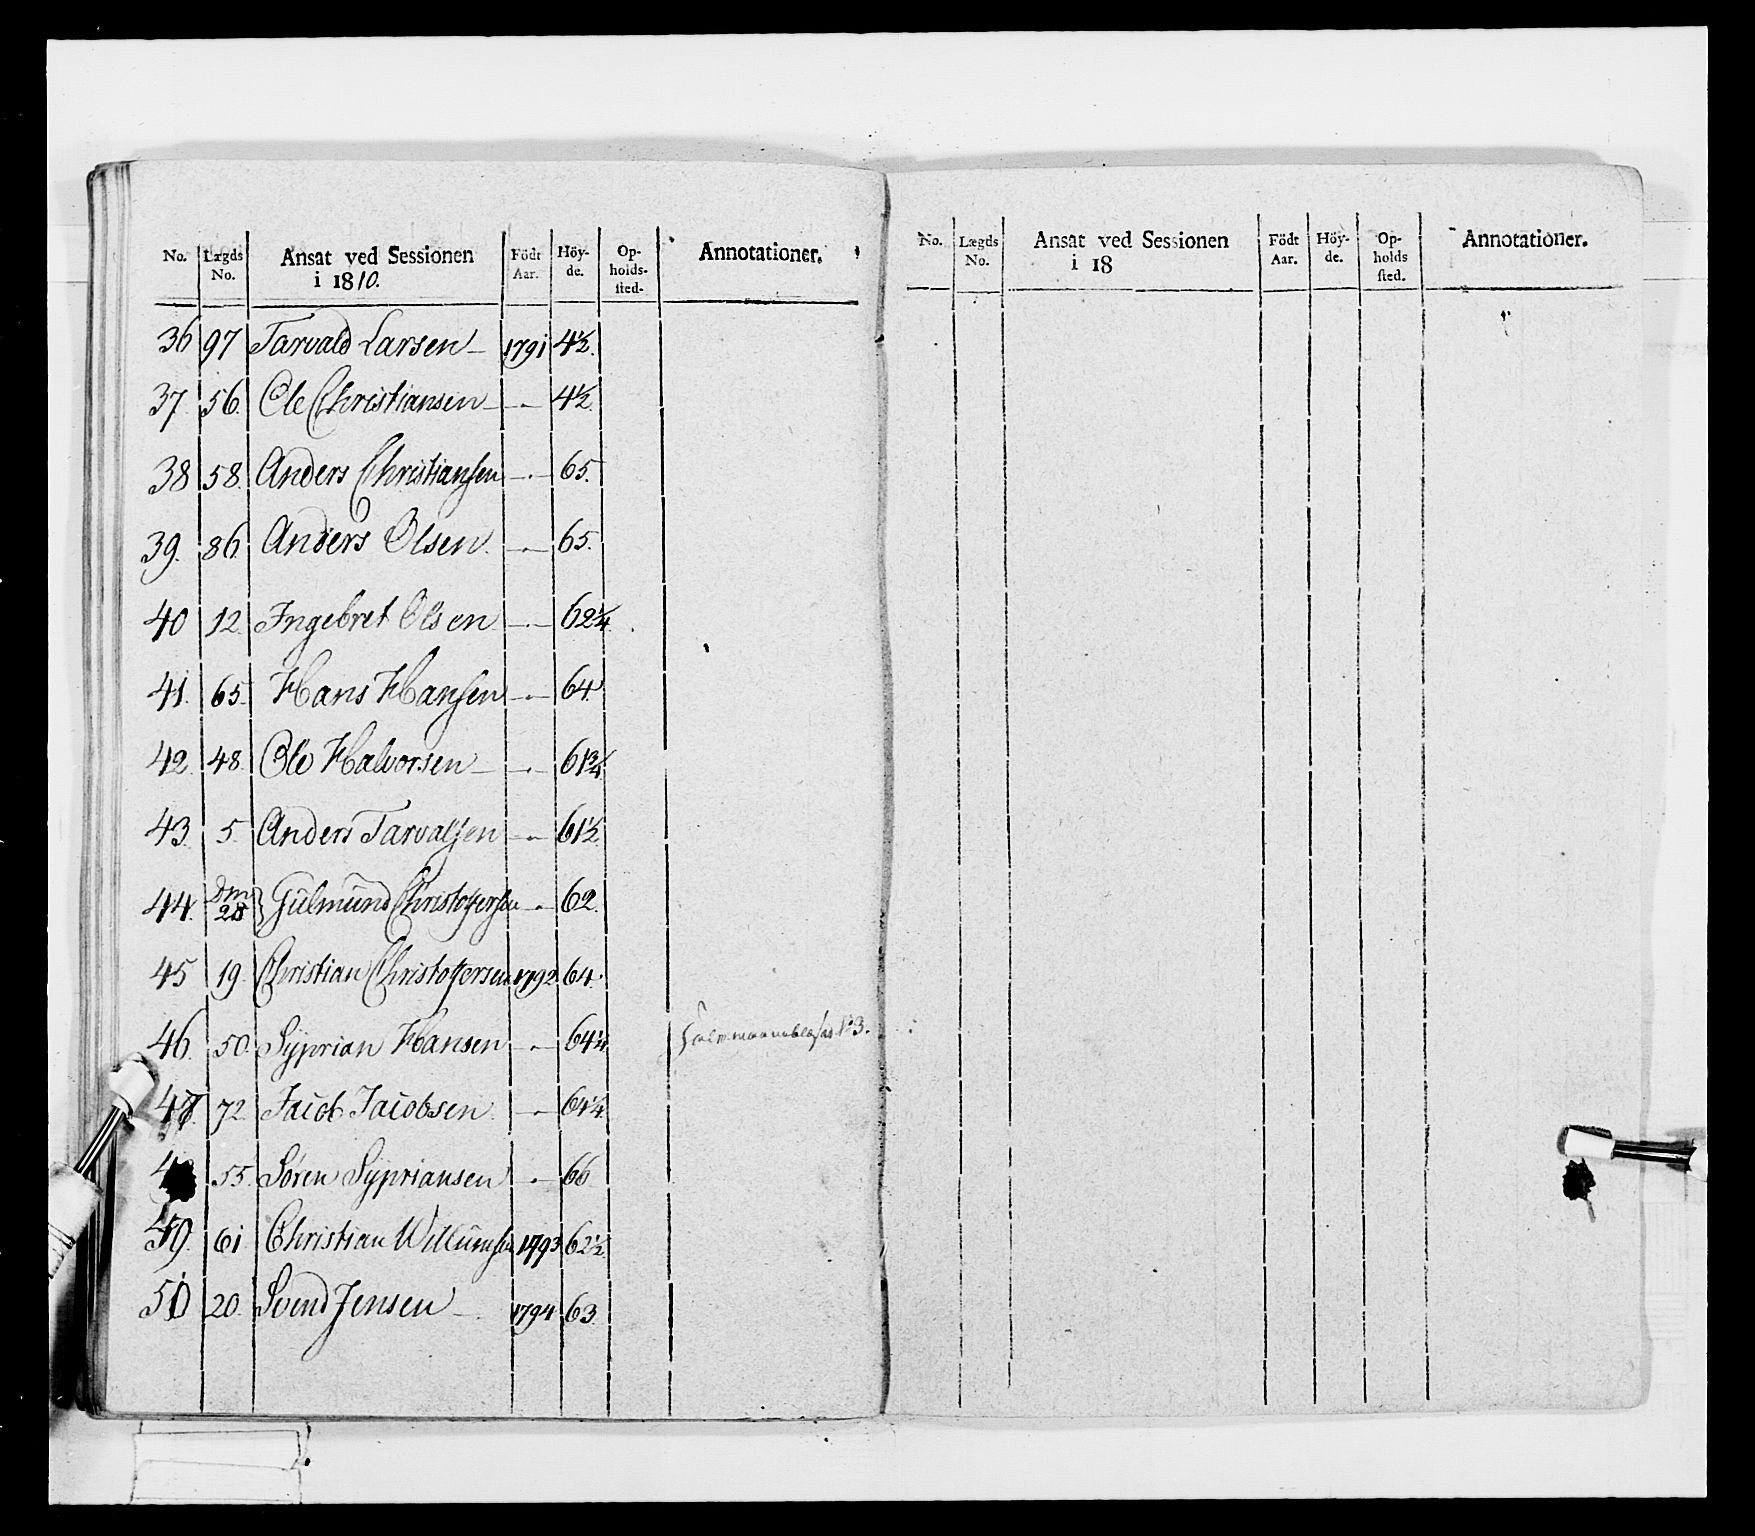 No. Lægds No. Ansat ved Sessionen i 1810. Födt Aar. Höy-de. Op-holds-sted. Annotationer.
36 97 Tarvald Larsen 1791 4½.
37. 56. Ole Christiansen — 4½.
38 58. Anders Christiansen — 65.
39. 86 Anders Olsen. — 65.
40 12. Ingebret Olsen — 62¼.
41. 65. Hans Hansen — 64.
42. 48. Ole Halvorsen — 61¾
43. 5. Anders Tarvalsen — 61½
44. Dm 28 } Gulmund Christophersen — 62.
45 19 Christian Christophersen 1792 64.
46. 50. Syprian Hansen — 64¼ No 3.
47. 72. Jacob Jacobsen — 64¼
55. Søren Sypriansen — 66
49. 61 Christian Willumsen 1793 62½
50 20. Svend Jensen 1794 63.
No. Lægds No. Ansat ved Sessionen i 18 Födt Aar. Höy-de. Op-holds sted. Annotationer.